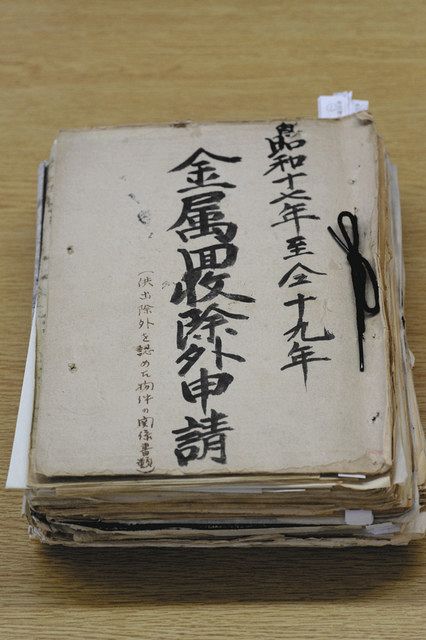 昭和十七年至仝十九年
金属回收除外申請
(供出除外を認めた物件の関係書類)